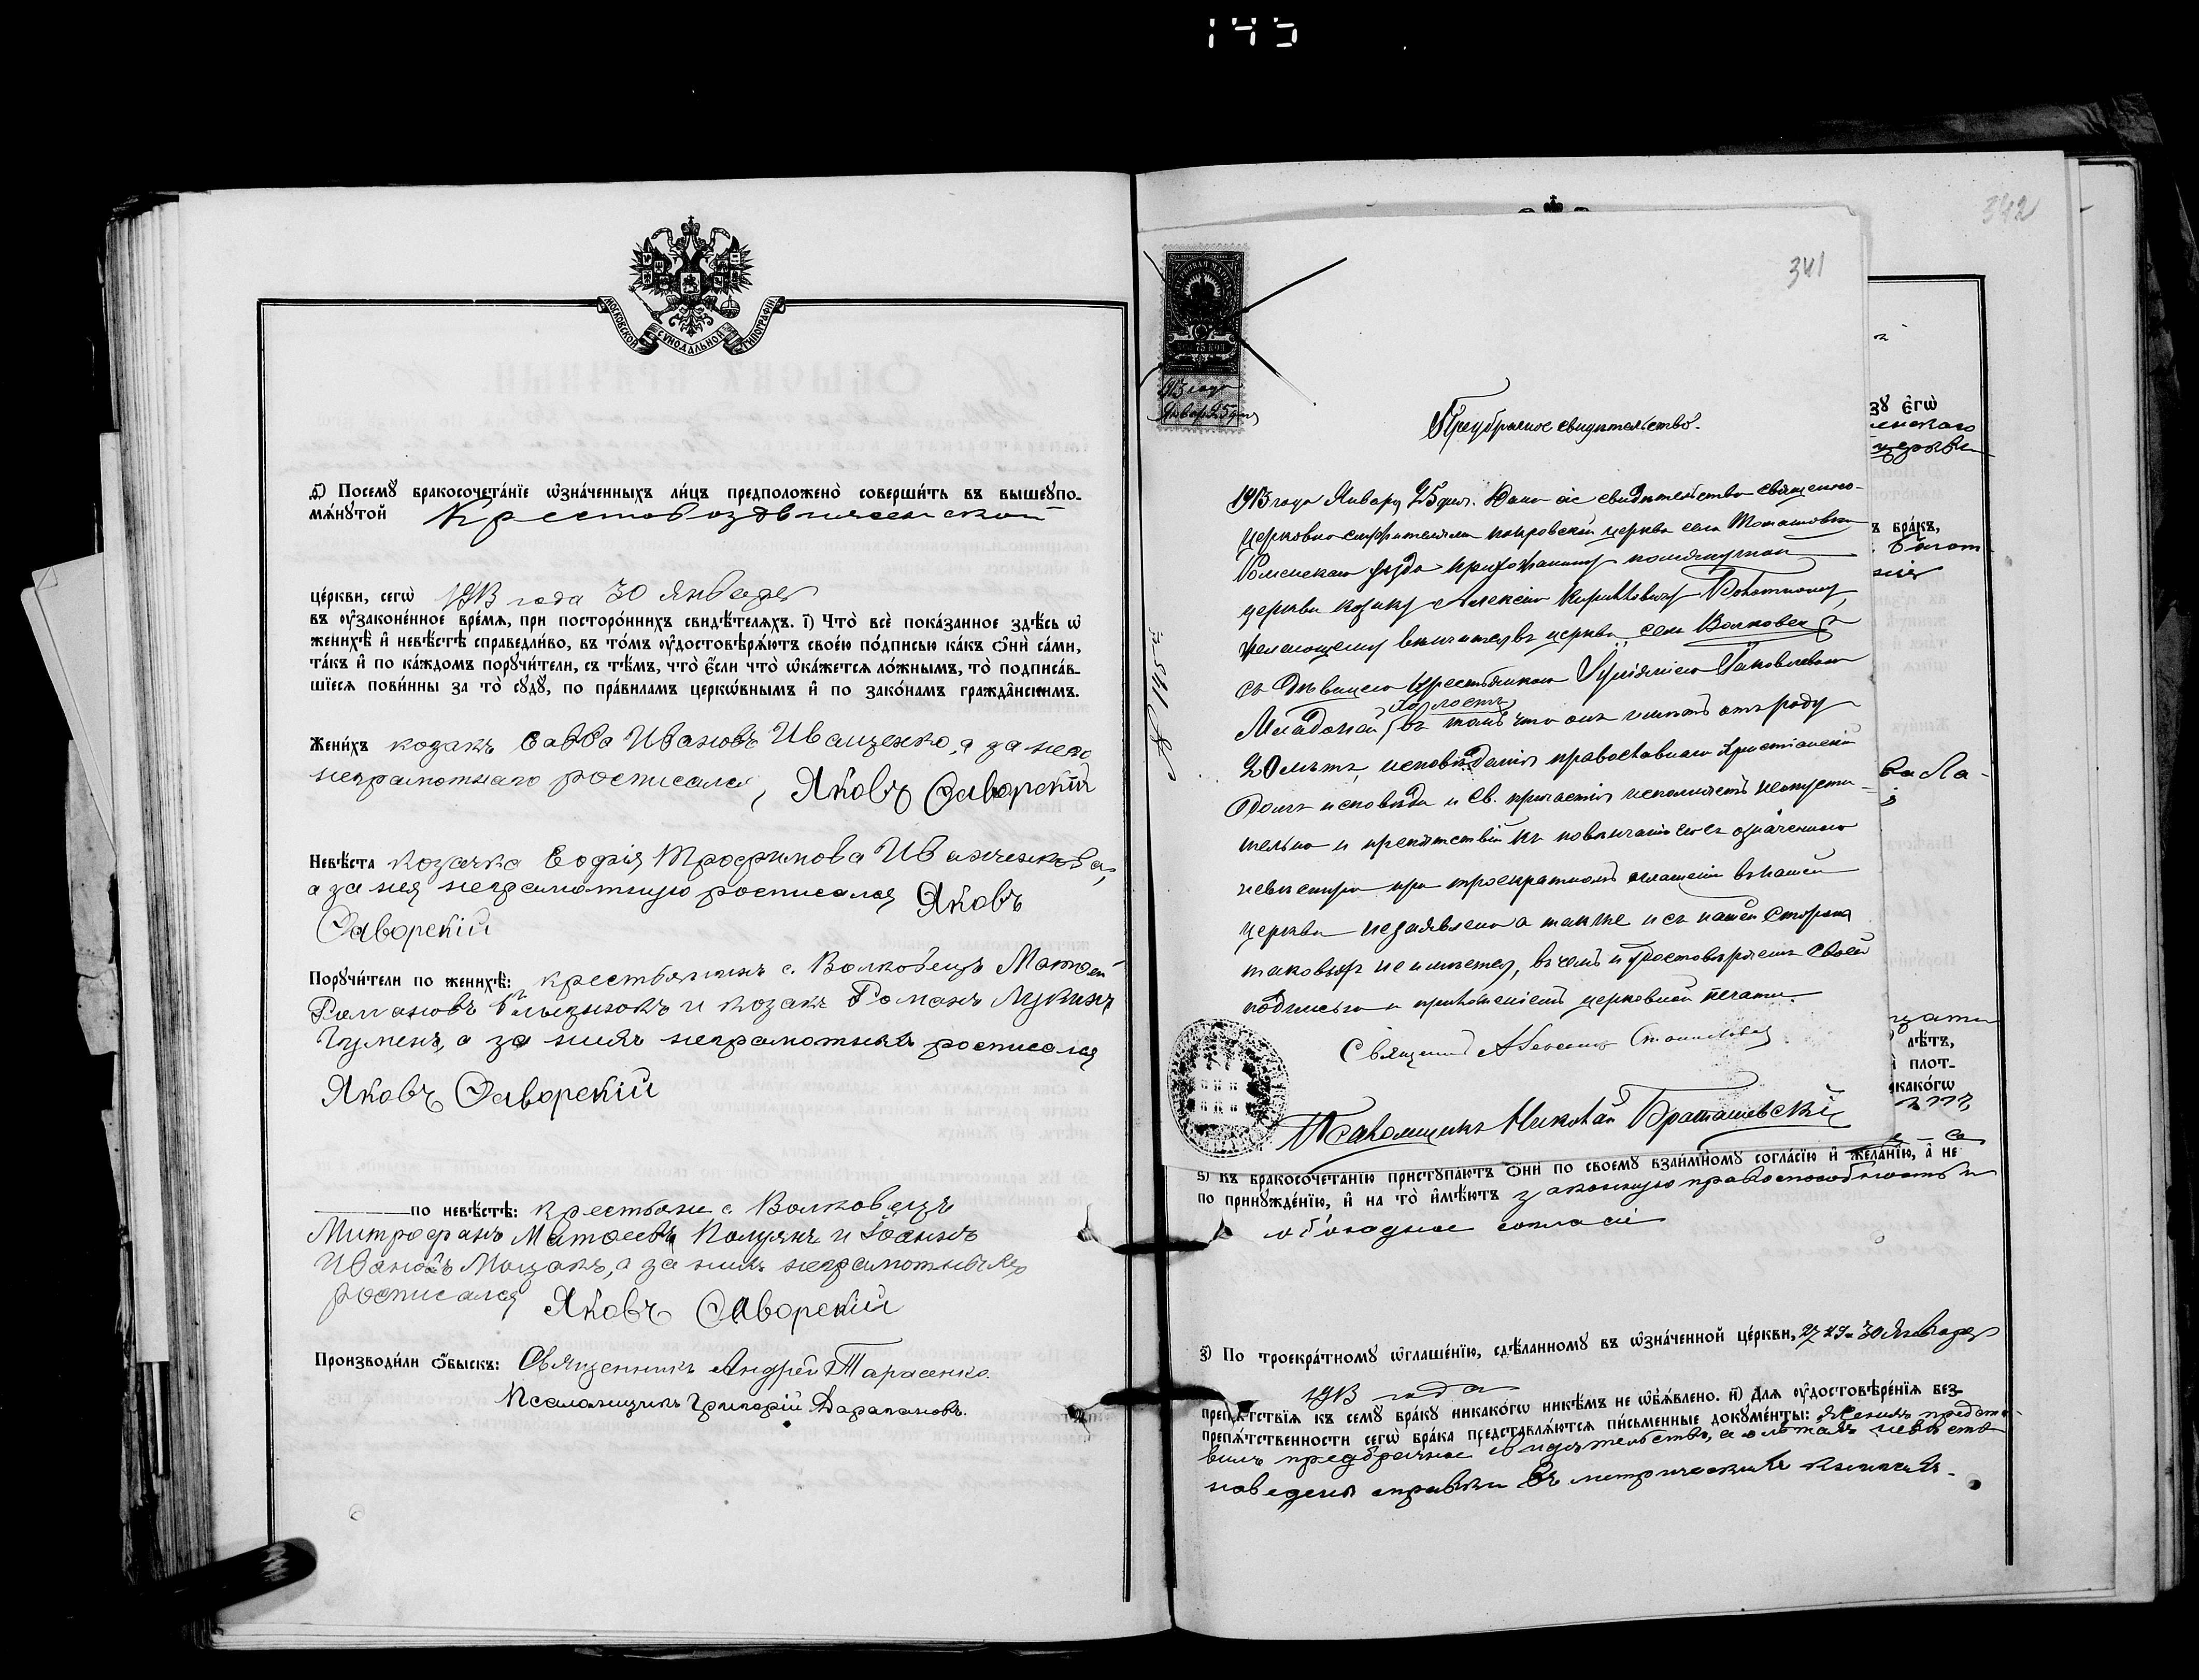 145
МОСКОВСКОЙ СѴНОДАЛЬНОЙ ТИПОГРАФІИ
Посемꙋ̀ бракосочета́нїе ѡ҆зна́ченныхъ ли́цъ предположено̀ соверши́ть въ вышеꙋпо-
мѧ́нꙋтой Крестовоздвиженской
це́ркви, сегѡ̀ 1913 года 30 Января
въ ᲂу҆зако́ненное вре́мѧ, при посторо́ннихъ свидѣ́телѧхъ. і҃) Что̀ всѐ пока́занное здѣ́сь ѡ҆
женихѣ̀ и҆ невѣ́стѣ справедли́во, въ то́мъ ᲂу҆достовѣрѧ́ютъ свое́ю по́дписью ка́къ ѻ҆нѝ са́ми,
та́къ и҆ по ка́ждомъ порꙋчи́тели, съ тѣ́мъ, что̀ є҆́сли что̀ ѡ҆ка́жетсѧ ло́жнымъ, то̀ подписа́в-
шїесѧ пови́нны за то̀ сꙋдꙋ̀, по пра́виламъ церкѡ́внымъ и҆ по зако́намъ гражда̑нскимъ.
Жени́хъ козакъ Савва Ивановъ Иващенко, а за него
неграмотнаго росписался, Яковъ Сѣворскій
Невѣ́ста козачка Софія Трофимова Иванченкова,
а за нея неграмотную росписался Яковъ
Сѣворскій
Порꙋчи́тели по женихѣ̀: крестьянинъ с. Волковецъ Матѳей
Романовъ и козакъ Романъ Лукинъ
Гуменъ, а за нихъ неграмотныхъ росписался
Яковъ Сѣворскій
по невѣ́стѣ: крестьяне с. Волковецъ
Митрофанъ Матѳеевъ Полуянъ и Іоаннъ
Ивановъ Моцакъ, а за нихъ неграмотныхъ
росписался Яковъ Сѣворскій
Производи́ли ѻ҆́быскъ: Священникъ Андрей Тарасенко.
Псаломщикъ Григорій
342
341
ГЕРБОВАЯ МАРКА
75 КОП
1913 года
Январ. 25 дня
Предбрачное свидѣтельство.
1913 года Января 25 дня. Дано сіе свидѣтельство священно-
церковно-служителями Покровской церкви села Томашовки
Роменскаго уѣзда прихожанину помянутой
церкви козаку Алексію Кирилловичу
желающему вѣнчаться въ церкви села Волковец
съ дѣвицею крестьянкою Іуліаніею Яковлевою
въ томъ что онъ имѣетъ отъ роду
20 лѣтъ, исповѣданія православнаго христіанскій
долгъ исповѣди и Св. причастія исполняетъ неопусти-
тельно и препятствій къ повѣнчанію его съ означенною
невѣстою при троекратномъ оглашеніи въ нашей
церкви незаявлено а также и съ нашей стороны
таковыхъ не имѣется, въ чемъ и удостовѣряемъ своей
подписью и приложеніемъ церковной печати.
Священникъ Алексій
Псаломщикъ Николай Браташевскій
зꙋ̀ є҆гѡ̀
церкви
ъ бра́къ,
лѣ́тъ,
плот-
како́гѡ
ѕ҃) Къ бракосочета́нїю пристꙋпа́ютъ ѻ҆нѝ по своемꙋ̀ взаи́мномꙋ согла́сїю и҆ жела́нїю, а҆ не
по принꙋжде́нїю, и҆ на то̀ и҆мѣ́ютъ законную правоспособность и
обоюдное согласіе
з҃) По троекра́тномꙋ ѡ҆глаше́нїю, сдѣ́ланномꙋ въ ѡ҆зна́ченной це́ркви, 27, 29 и 30 Января
1913 года
препѧ́тствїѧ къ семꙋ̀ бра́кꙋ никако́гѡ никѣ́мъ не ѡ҆б̾ѧ́влено. и҃) Длѧ ᲂу҆достовѣре́нїѧ без-
препѧ́тственности сегѡ̀ бра́ка представлѧ́ютсѧ пи́сьменные докꙋме́нты: Женихъ предста-
вилъ предбрачное свидѣтельство, а о лѣтахъ невѣсты
наведена справка въ метрическихъ книгахъ.